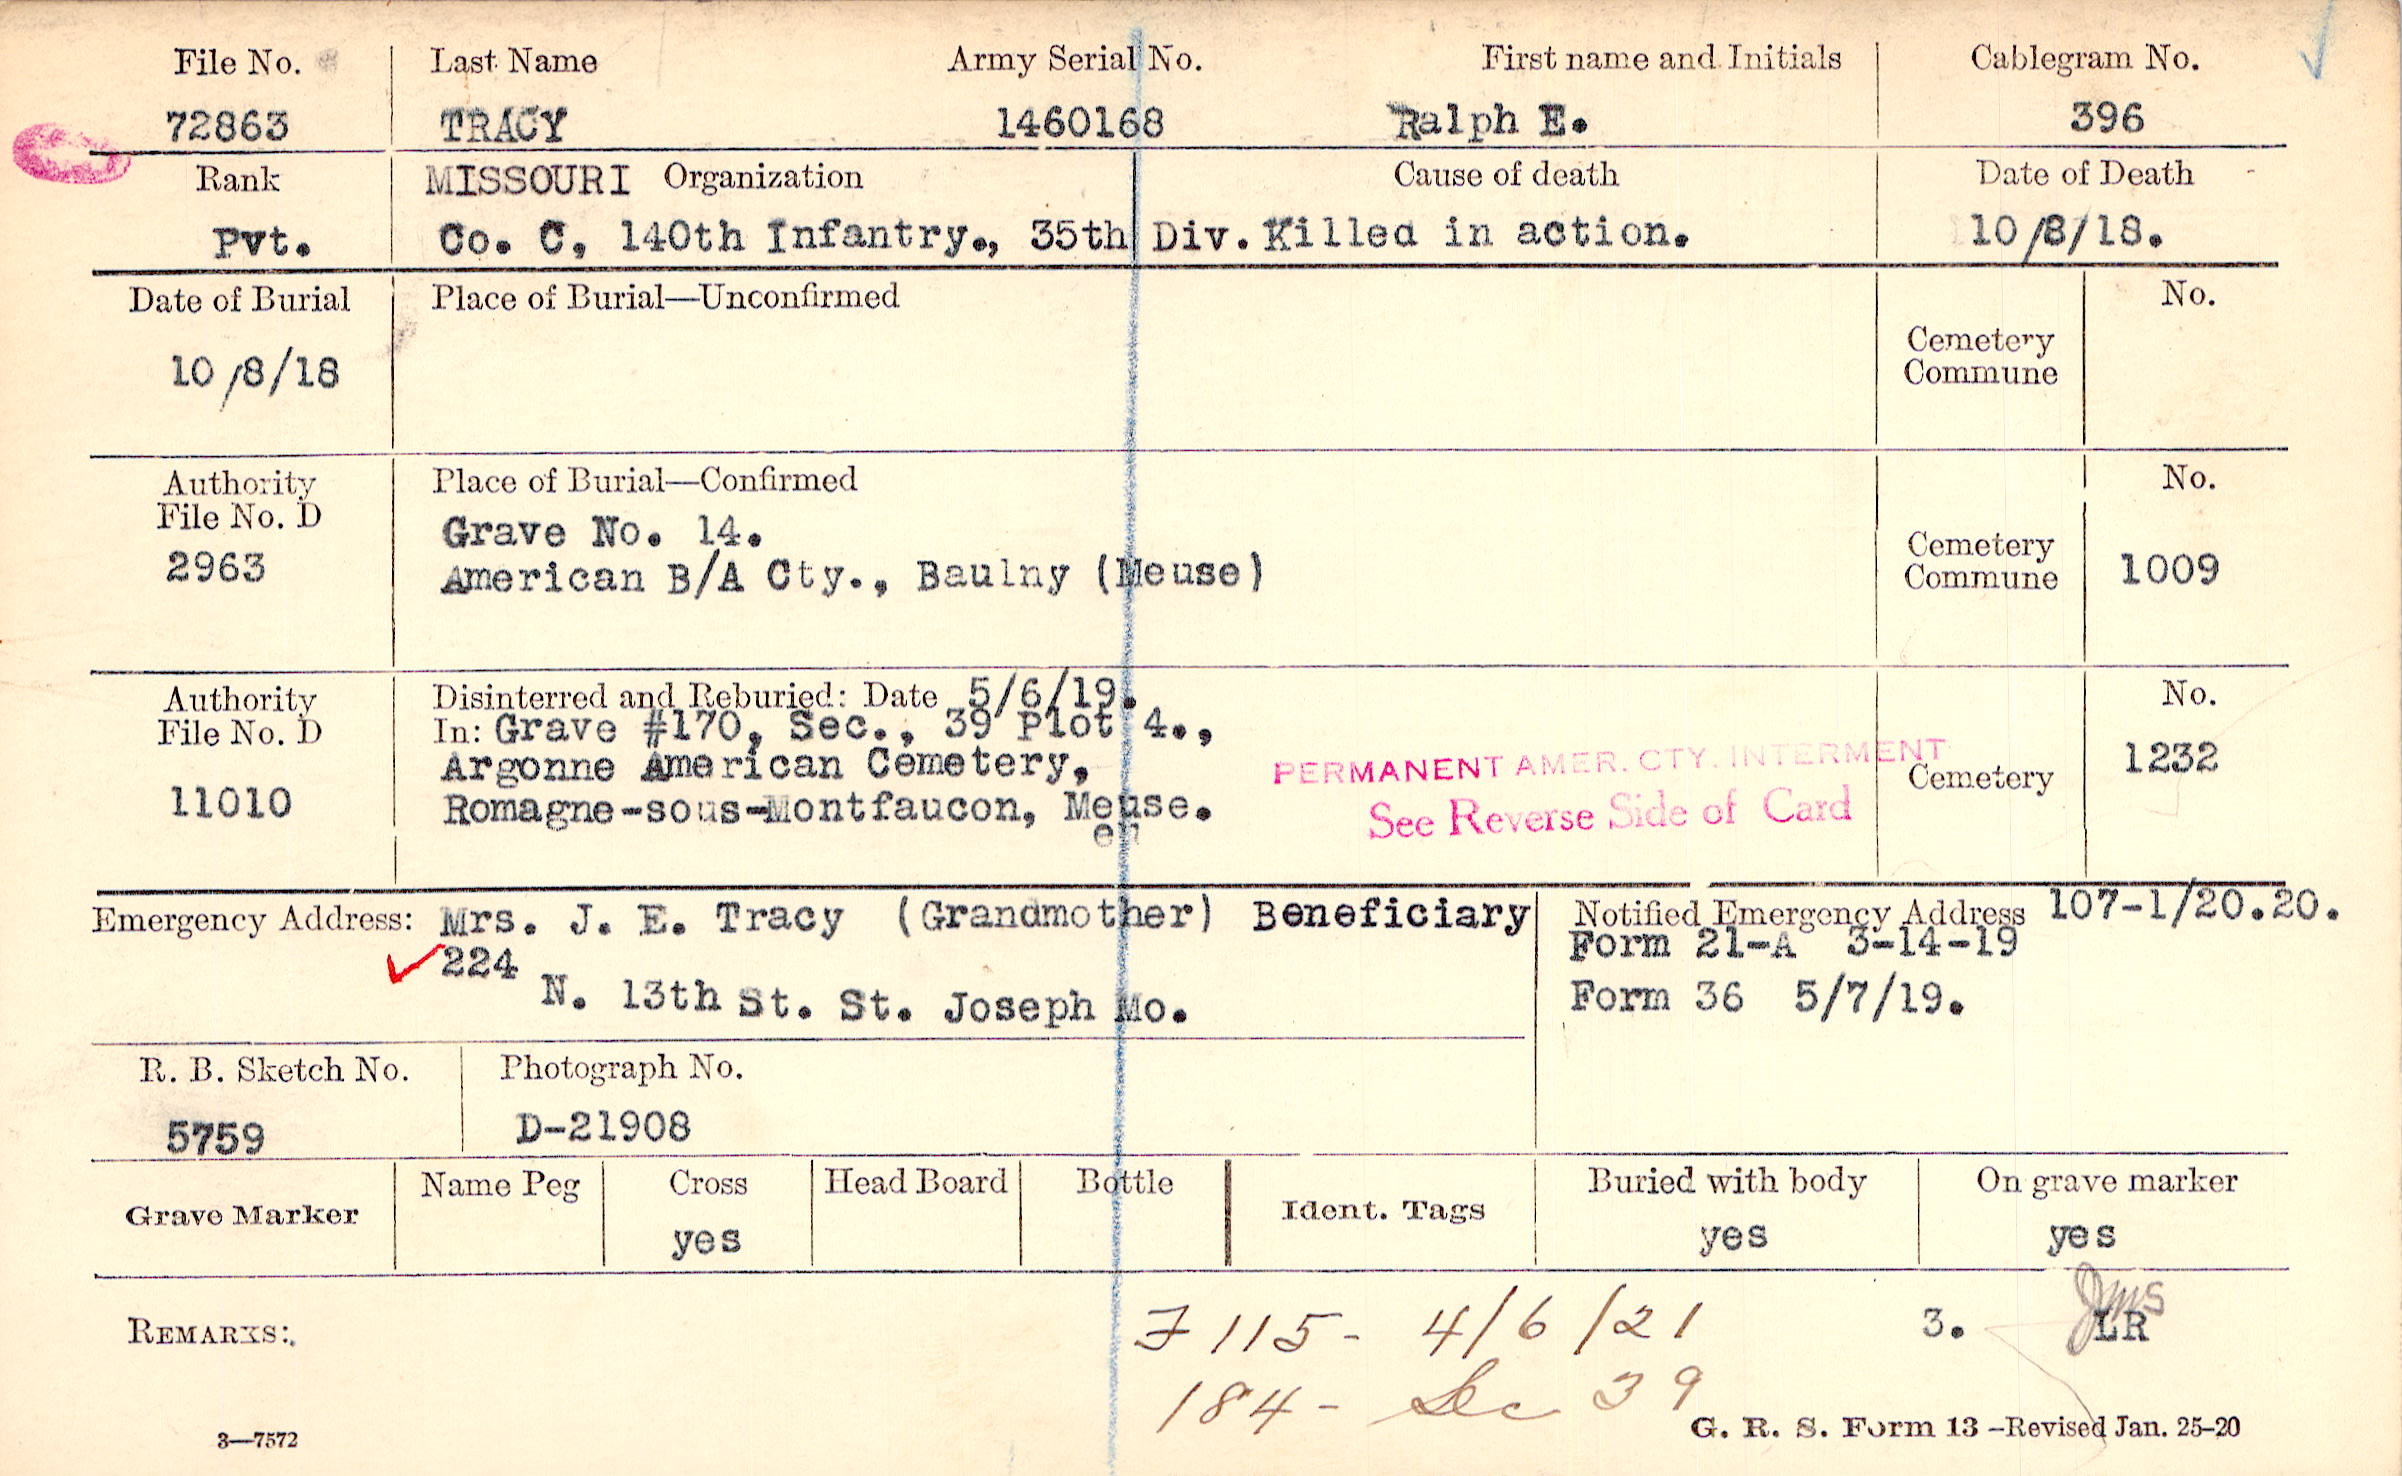 File No. Last Name Army Serial No. First name and Initials Cablegram No.
72863 TRACY 1460168 Ralph E. 396
Rank MISSOURI Organization Cause of death Date of Death
Pvt. Co. C, 140th Infantry., 35th Div. Killed in action. 10/8/18.
Date of Burial Place of Burial—Unconfirmed No.
10/8/18
Cemetery
Commune
Authority Place of Burial—Confirmed No.
File No. D
2963
Grave No. 14.
American B/A Cty., Baulny (Meuse)
Cemetery
Commune
1009
Authority Disinterred and Reburied: Date 5/6/19. No.
File No. D In: Grave #170, Sec., 39 Plot 4.,
Argonne American Cemetery,
11010 Romagne-sous-Montfaucon, Meuse.
er
PERMANENT AMER. CTY. INTERMENT
See Reverse Side of Card
Cemetery 1232
Emergency Address: Mrs. J. E. Tracy (Grandmother) Beneficiary
224
N. 13th St. St. Joseph Mo.
Notified Emergency Address 107-1/20.20.
Form 21-A 3-14-19
Form 36 5/7/19.
R. B. Sketch No. Photograph No.
5759 D-21908
Grave Marker Name Peg Cross Head Board Bottle Ident. Tags Buried with body On grave marker
yes yes yes
REMARKS:
F 115- 4/6/21
3. LR
JMS
184- Sec 39
3—7572 G. R. S. Form 13 –Revised Jan. 25-20